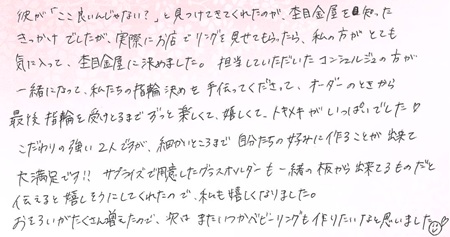 彼が「ここ良いんじゃない?」と見つけてきてくれたのが、杢目金屋を知った
きっかけでしたが、実際にお店でリングを見せてもらったら、私の方がとても
気に入って、杢目金屋に決めました。担当していただいたコンシェルジュの方が
一緒になって、私たちの指輪決めを手伝ってくださって、オーダーのときから
最後指輪を受けとるまでずっと楽しくて、嬉しくて、トキメキがいっぱいでした♡
こだわりの強い2人ですが、細かいところまで自分たちの好みに作ることが出来て
大満足です!! サプライズで用意したグラスホルダーも一緒の板から出来てるものだと
伝えると嬉しそうにしてくれたので、私も嬉しくなりました。
おそろいがたくさん増えたので、次はまたいつかベビーリングも作りたいなと思いました♡